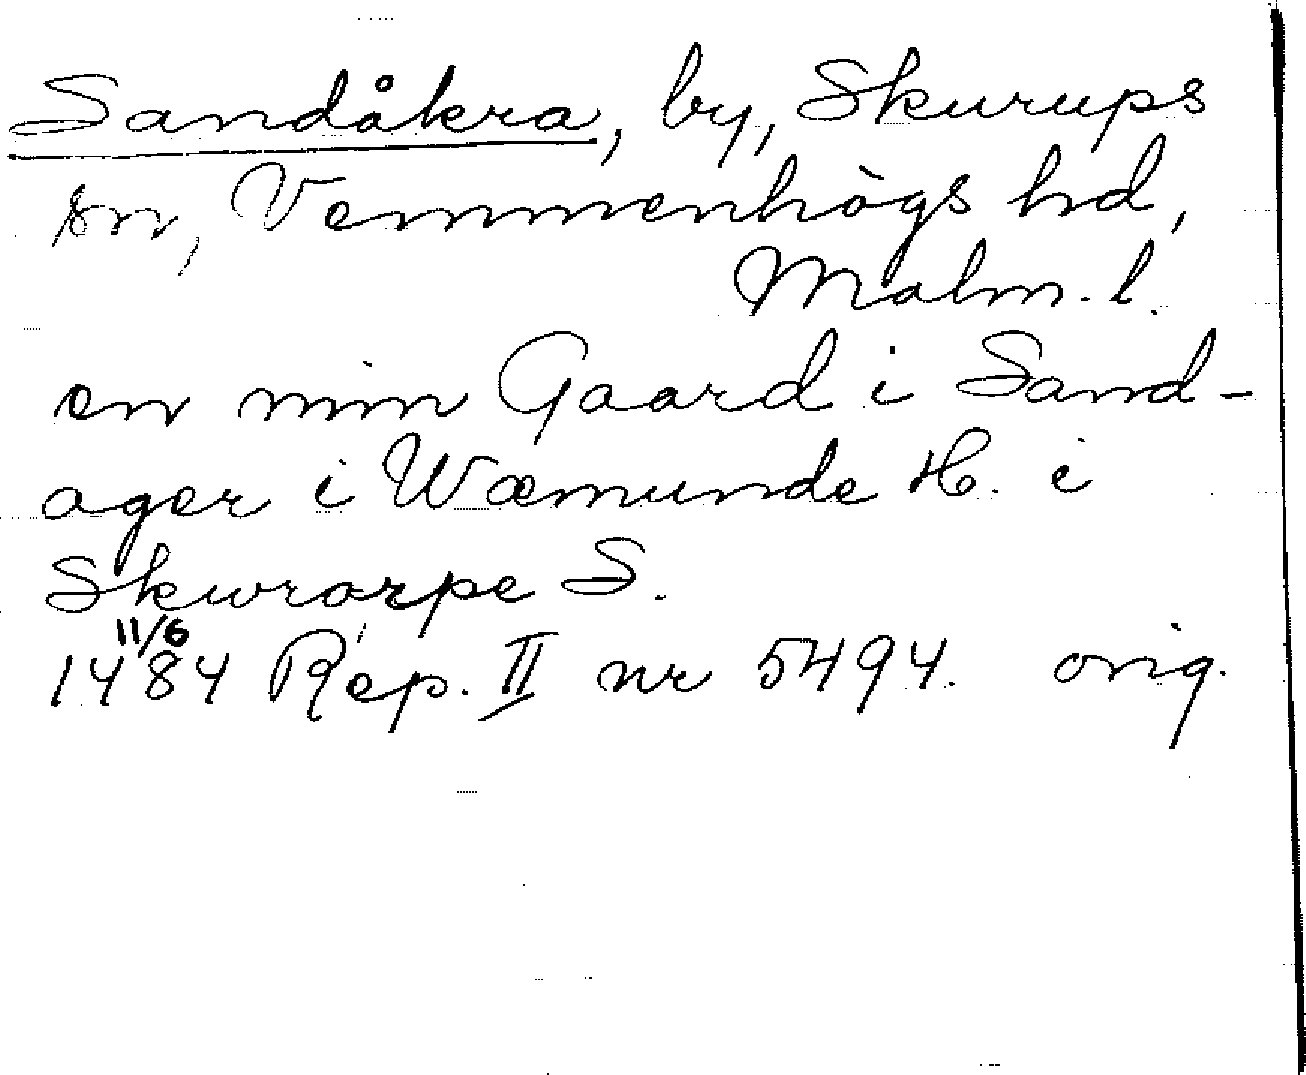 Sandåkra, by, Skurups
sn, Vemmenhögs hd,
Malm. l.
en min Gaard i Sand-
ager i Wæmunde H. i
Skwrorpe S.
11/6
1484 Rep. II nr 5494. orig.